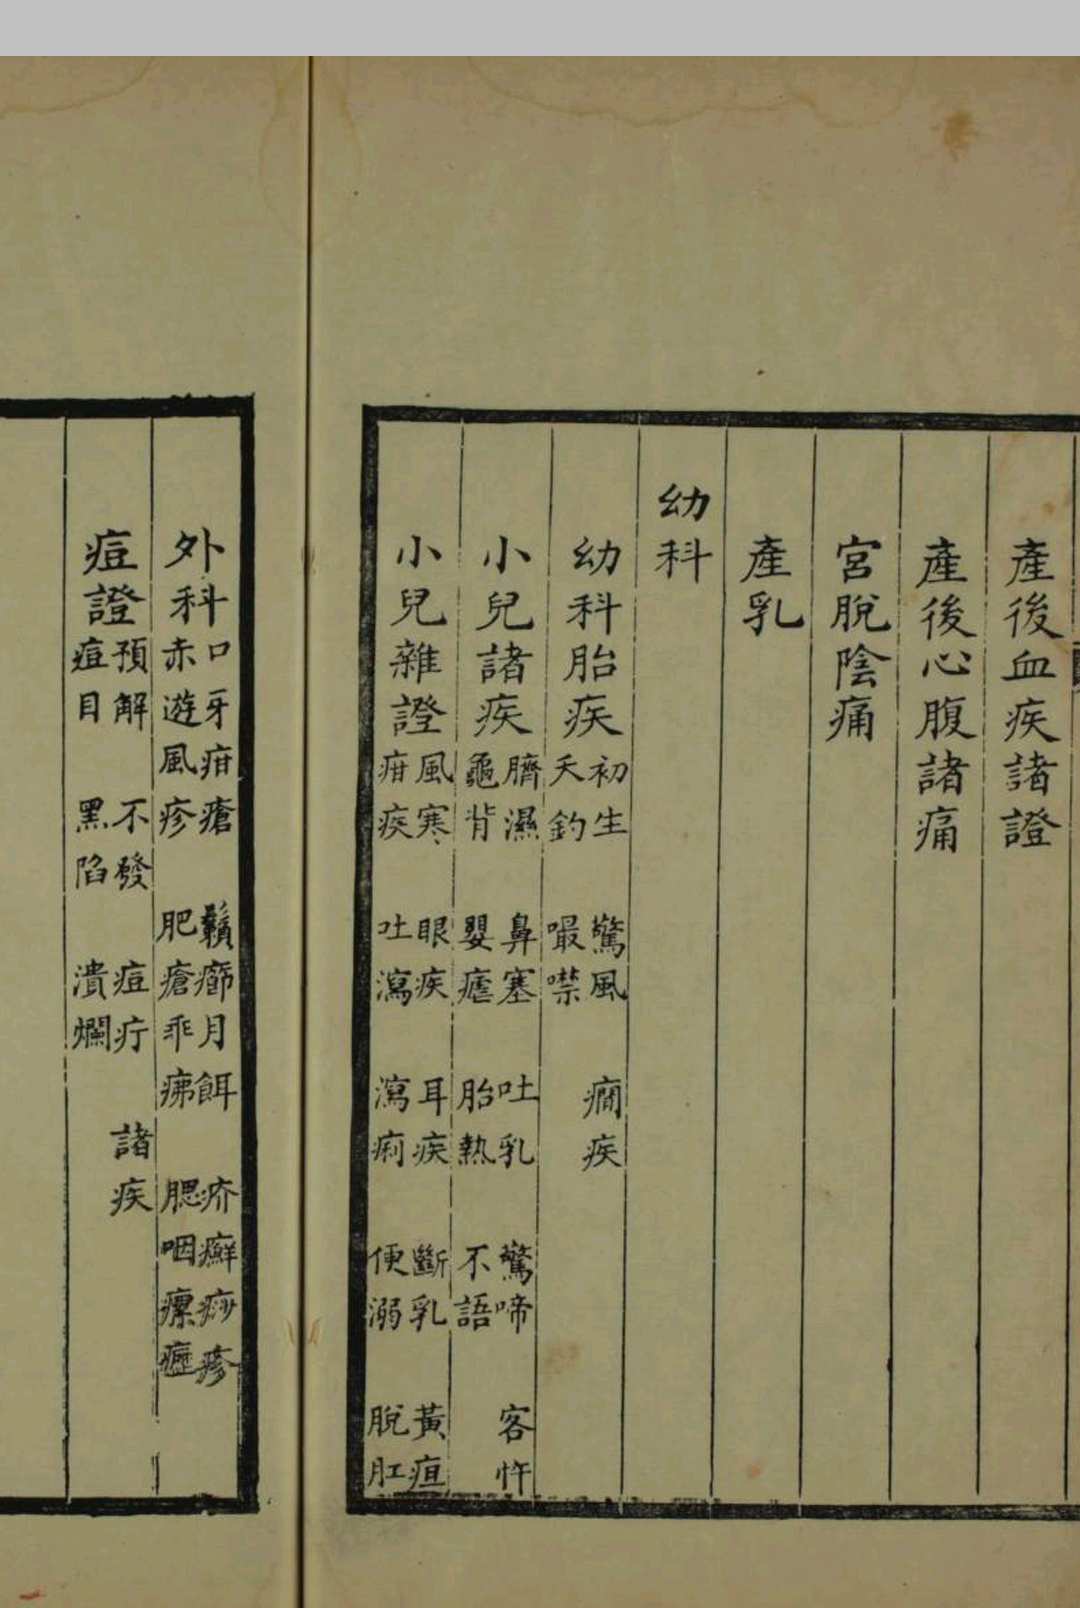 產後血疾諸證
產後心腹諸痛
宮脫陰痛
產乳
幼科
幼科胎疾
初生 驚風 癇疾
天釣 嘬噤
小兒諸疾
臍濕 鼻塞 吐乳 驚啼 客忤
龜背 嬰瘧 胎熱 不語
小兒雜證
風寒 眼疾 耳疾 斷乳 黃疸
疳疾 吐瀉 瀉痢 便溺 脫肛
外科
口牙疳瘡 癤月餌 疥癬痧疹
赤遊風疹 肥瘡乖疿 腮咽瘰癧
痘證
預解 不發 痘疔 諸疾
痘目 黑陷 潰爛